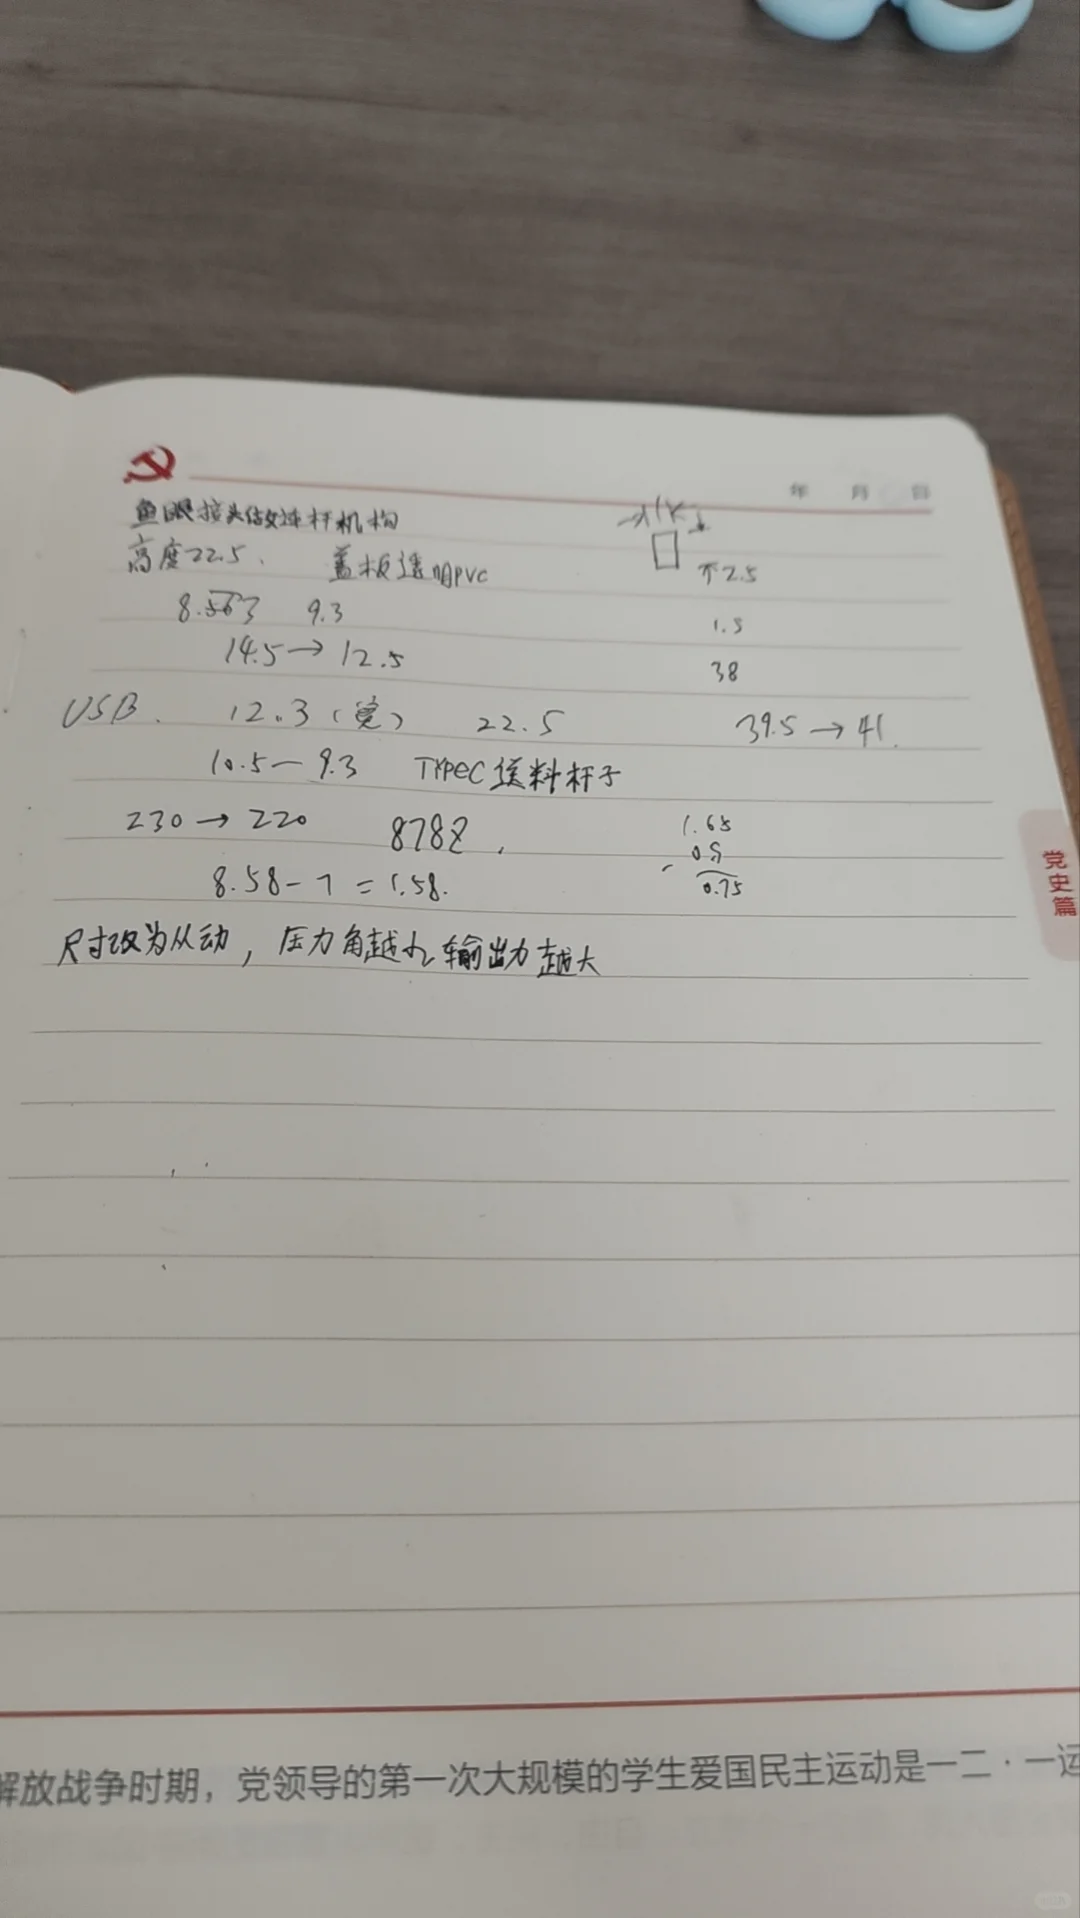 年 月 日
鱼眼接头做连杆机构
高度22.5. 盖板透明PVC
不2.5
8.563 9.3
1.3
14.5→12.5
38
USB. 12.3(宽) 22.5 39.5→41.
10.5—9.3 TYPEC送料杆子
230→220 8782.
1.65
- 0.9
0.75
8.58-7=1.58.
尺寸改为从动,压力角越小输出力越大
党史篇
解放战争时期,党领导的第一次大规模的学生爱国民主运动是一二·一运